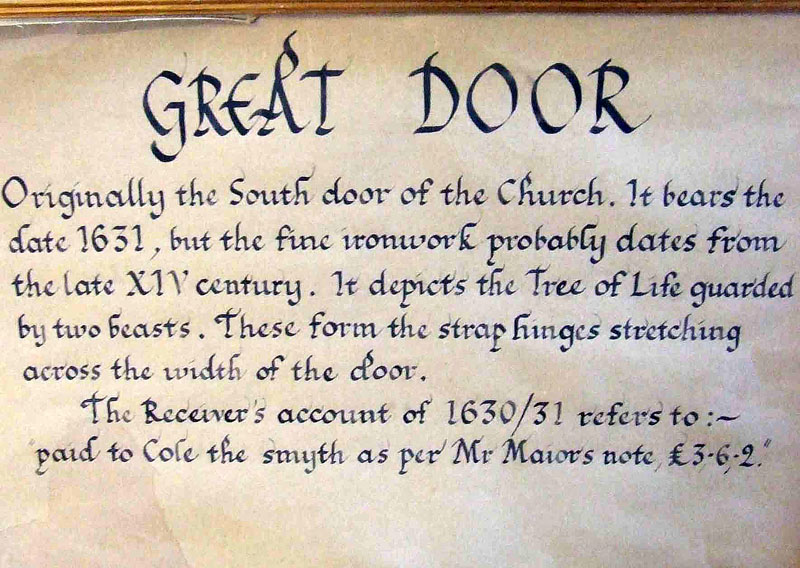 GREAT DOOR
Originally the South door of the Church. It bears the
date 1631, but the fine ironwork probably dates from
the late XIV century. It depicts the Tree of Life guarded
by two beasts. These form the strap hinges stretching
across the width of the door.
The Receiver's account of 1630/31 refers to :~
"paid to Cole the smyth as per Mr Maiors note, £3-6-2."